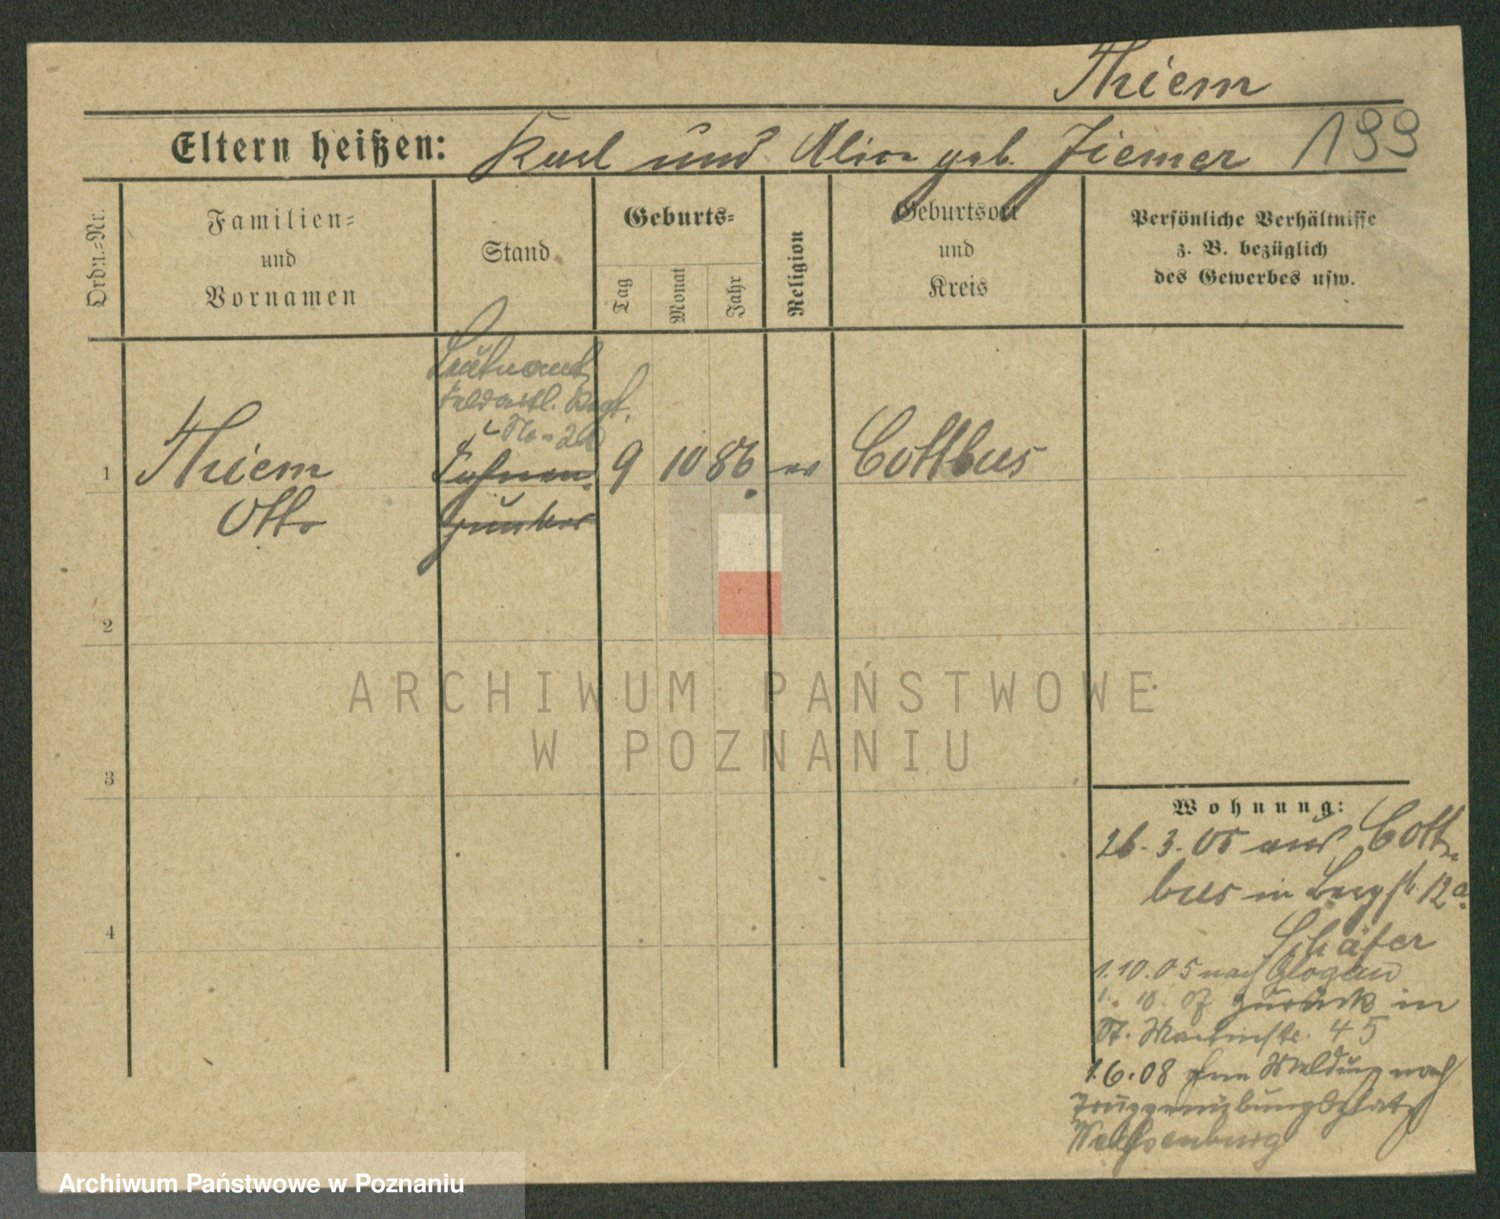 Thiem
Eltern heißen: Karl und Alice geb. Ziemer 199
Ordn.=Nr.
Familien=
und
Vornamen
Stand
Geburts=
Tag
Monat
Jahr
Religion
Geburtsort
und
Kreis
Persönliche Verhältnisse
z. B. bezüglich
des Gewerbes usw.
Leutnant
Feldartl. Regt.
No. 20
1 Thiem Fahnen= 9 10 86 ev Cottbus
Otto junker
2
3
4
ARCHIWUM PAŃSTWOWE
W POZNANIU
Wohnung:
26.3.05 aus Cott=
bus in Bergstr. 12a
Schäfer
1.10.05 nach Glogau
1.10.07 zurück in
St. Martinstr. 45
1.6.08 ohne Meldung nach
Truppenübungsplatz
Archiwum Państwowe w Poznaniu